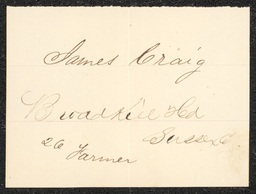 James Craig
Broadkiln Hd
Sussex C.
26 Farmer